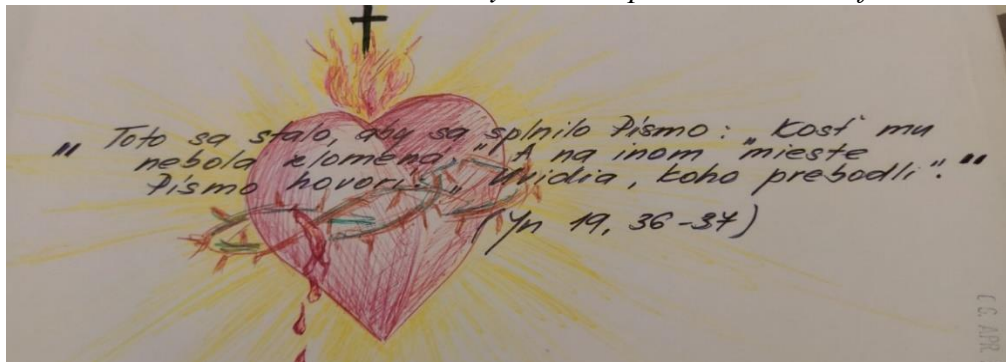 " Toto sa stalo, aby sa splnilo Písmo: „Kosť mu
nebola zlomená." A na inom mieste
Písmo hovorí: „Uvidia, koho prebodli"."
(Jn 19, 36-37)